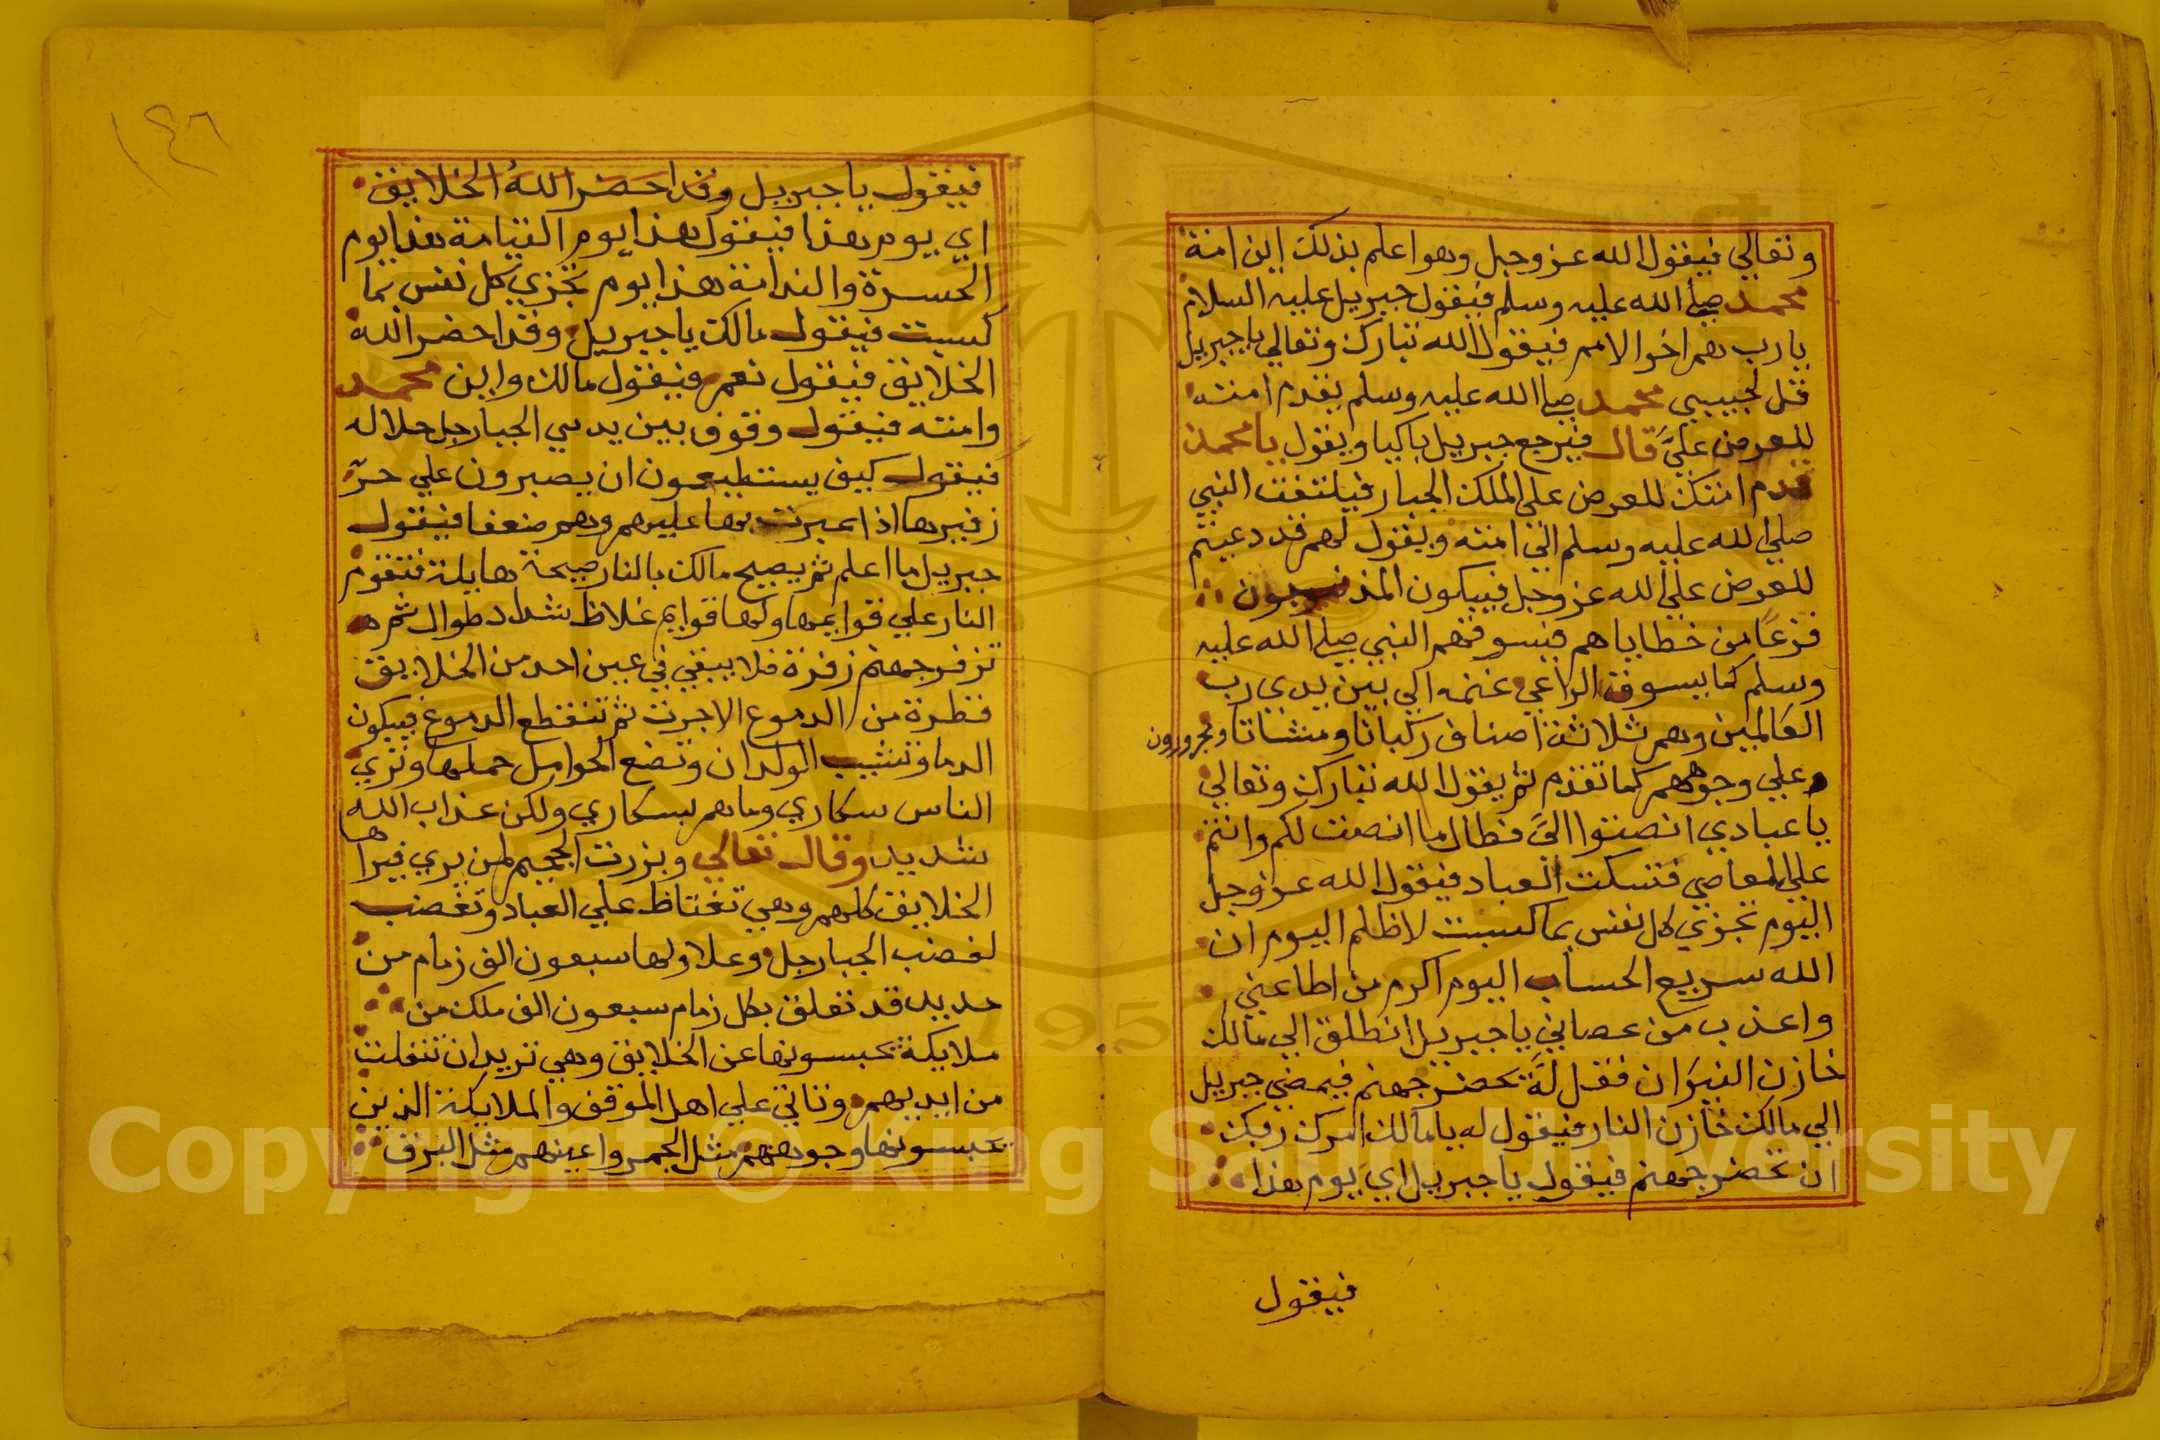 وتعالي فيقول الله عز وجل وهو اعلم بذلك اين امة
محمد صلي الله عليه وسلم فيقول جبريل عليه السلام
يا رب هم اخر الامم فيقول الله تبارك وتعالي يا جبريل
قل لحبيبي محمد صلي الله عليه وسلم يقدم امته
للعرض عليَّ قال فيرجع جبريل باكيا ويقول يا محمد
قدم امتك للعرض علي الملك الجبار فيلتفت النبي
صلي الله عليه وسلم الي امته ويقول لهم قد دعيتم
للعرض علي الله عز وجل فيبكون المذنبون
فزعًا من خطاياهم فيسوقهم النبي صلي الله عليه
وسلم كما يسوق الراعي غنمه الي بين يدي رب
العالمين وهم ثلاثة اصناف ركبانا ومشاتا ومجرورون
علي وجوههم كما تقدم ثم يقول الله تبارك وتعالي
يا عبادي انصتوا اليَّ فطال ما انصت لكم وانتم
علي المعاصي فتسكت العباد فيقول الله عز وجل
اليوم تجزي كل نفس بما كسبت لا ظلم اليوم ان
الله سريع الحساب اليوم اكرم من اطاعني
واعذب من عصاني يا جبريل انطلق الي مالك
خازن النيران فقل له يحضر جهنم فيمضي جبريل
الي مالك خازن النار فيقول له يا مالك امرك ربك
ان تحضر جهنم فيقول يا جبريل اي يوم هذا
فيقول
١٤٦
فيقول يا جبريل وقد احضر الله الخلايق
اي يوم هذا فيقول هذا يوم القيامة هذا يوم
الحسرة والندامة هذا يوم تجزي كل نفس بما
كسبت فيقول مالك يا جبريل وقد احضر الله
الخلايق فيقول نعم فيقول مالك واين محمد
وامته فيقول وقوف بين يدي الجبار جل جلاله
فيقول كيف يستطيعون ان يصبرون علي حر
زفيرها اذا عبرت بها عليهم وهم ضعفا فيقول
جبريل ما اعلم ثم يصيح مالك بالنار صيحة هايلة فتقوم
النار علي قوايمها ولها قوايم غلاظ شداد طوال ثم
تزفر جهنم زفرة فلا يبقي في عين احد من الخلايق
قطرة من الدموع الا جرت ثم تنقطع الدموع فيبكون
الدما وتشيب الولدان وتضع الحوامل حملها وتري
الناس سكاري وما هم بسكاري ولكن عذاب الله
شديد وقال تعالي وبرزت الجحيم لمن يري فيراها
الخلايق كلهم وهي تغتاظ علي العباد وتغضب
لغضب الجبار جل وعلا ولها سبعون الف زمام من
حديد قد تعلق بكل زمام سبعون الف ملك من
ملايكة يحبسونها عن الخلايق وهي تريد ان تنفلت
من ايديهم وتاتي علي اهل الموقف والملايكة الذين
يحبسونها وجوههم مثل الجمر واعينهم مثل البرق
Copyright © King Saud University
1957